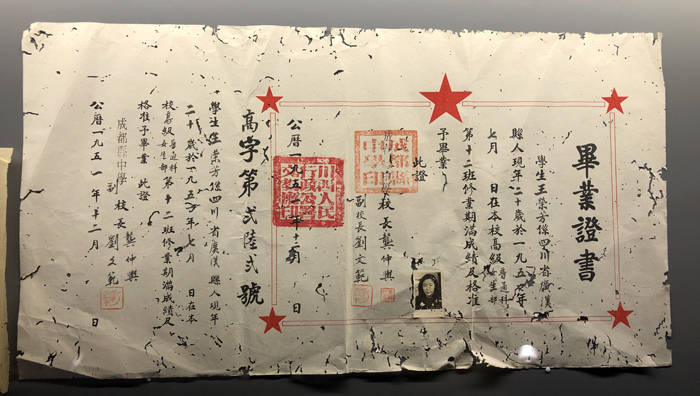 畢業證書
學生王榮芳係四川省廣漢
縣人現年二十歲於一九五
七月 日在本校高級普通科女生部
第十二班修業期滿成績及格准
予畢業
此證
校長龔仲興
副校長劉文範
公曆一九五一年十二月 日
高字第貳陸貳號
學生王榮芳係四川省廣漢縣人現年
二十歲於一九五 年七月 日在本
校高級普通科女生部第十二班修業期滿成績及
格准予畢業 此證
成都縣中學 校長龔仲興
副 劉文範
公曆一九五一年十二月 日